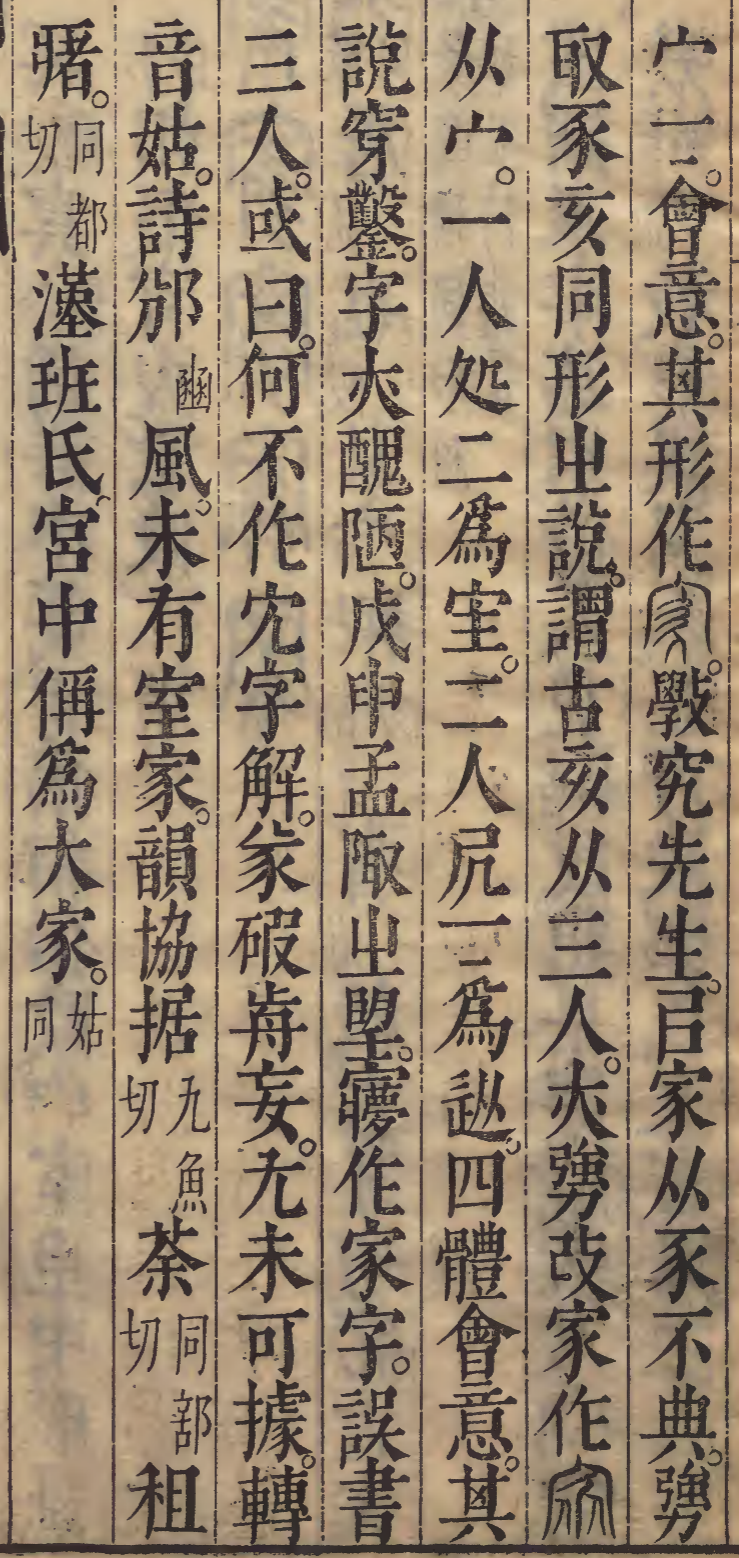 宀一二。會意。其形作𡧊。斅究先生。㠯家从豕不典。彊
取豕亥同形㞢說。謂古亥从三人。亦彊改家作
从宀。一人処二爲𡧛。二人凥一二爲。四體會意。其
說穿鑿。字亦醜陋。戊申孟陬㞢朢。㝱作家字。誤書
三人。或曰。何不作字解。豙破歬妄。尢未可據。轉
音姑。詩邠豳風。未有室家。韻協据九魚切荼同部切租
𤺺。同都切漢班氏。宮中偁爲大家。姑同